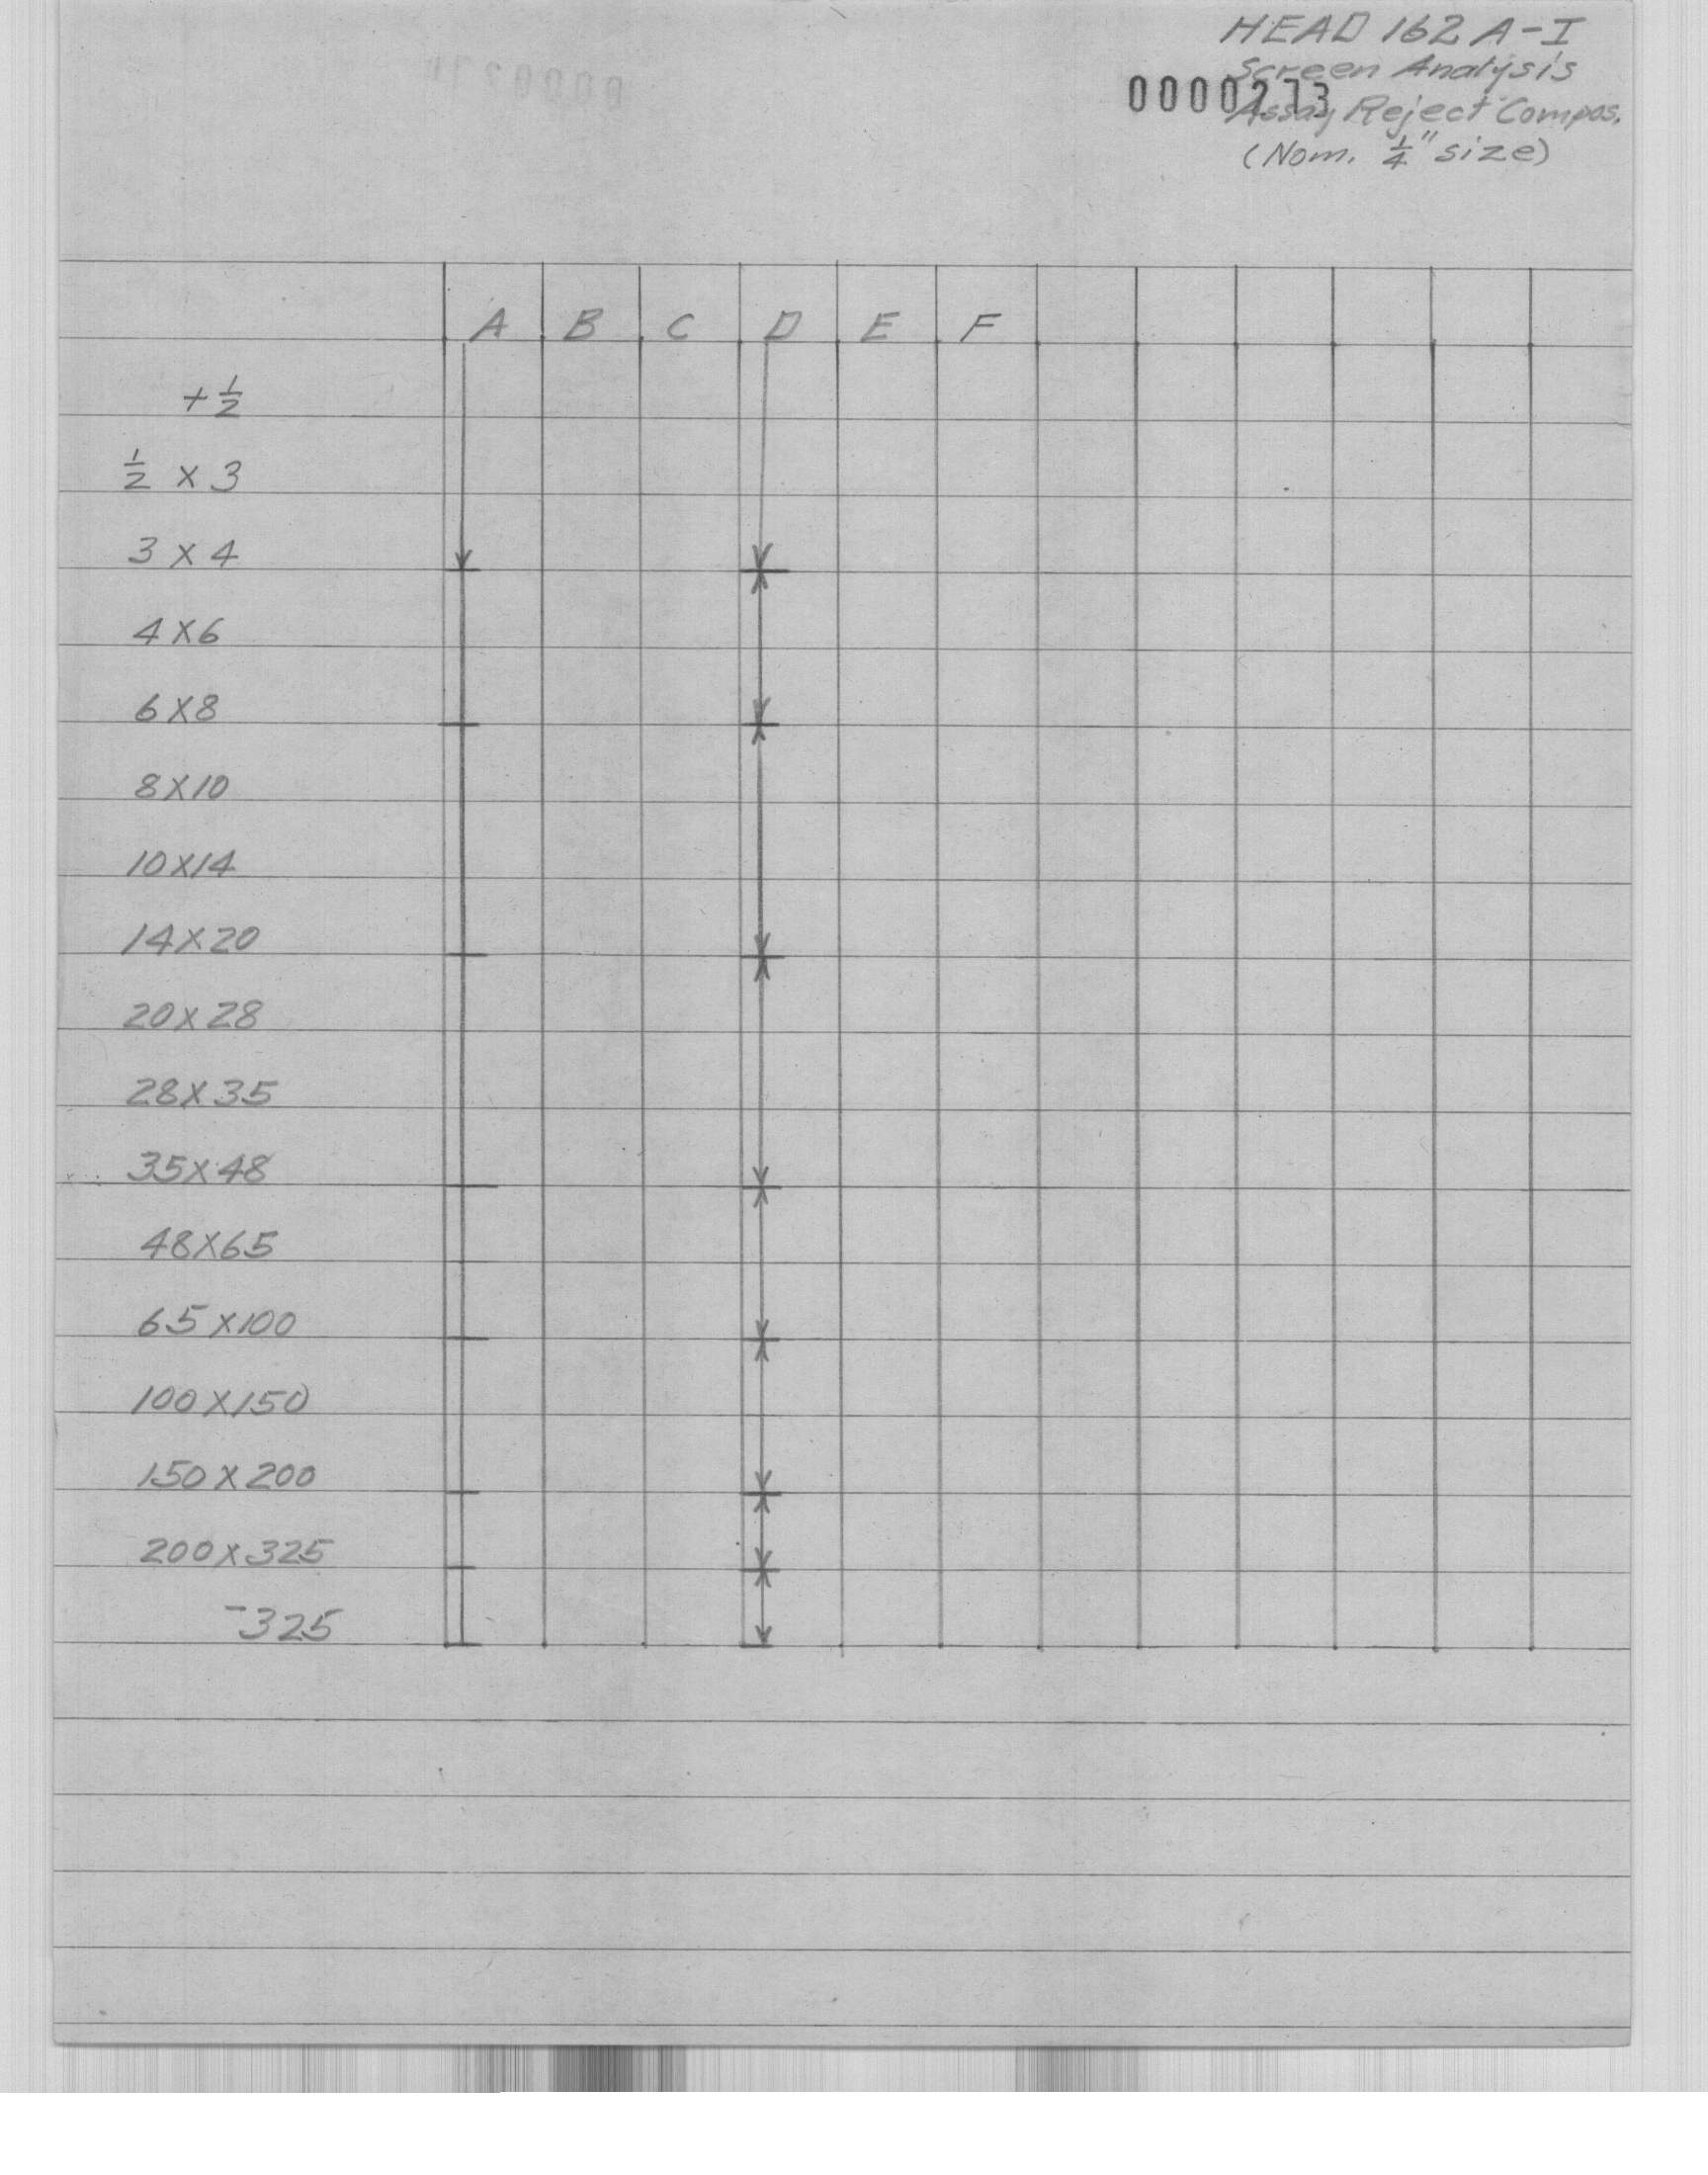 HEAD 162 A-I
Screen Analysis
0000273
Assay Reject Compos.
(Nom. 1/4" size)
A B C D E F
+ 1/2
1/2 x 3
3 x 4
4 x 6
6 x 8
8 x 10
10 x 14
14 x 20
20 x 28
28 x 35
35 x 48
48 x 65
65 x 100
100 x 150
150 x 200
200 x 325
-325